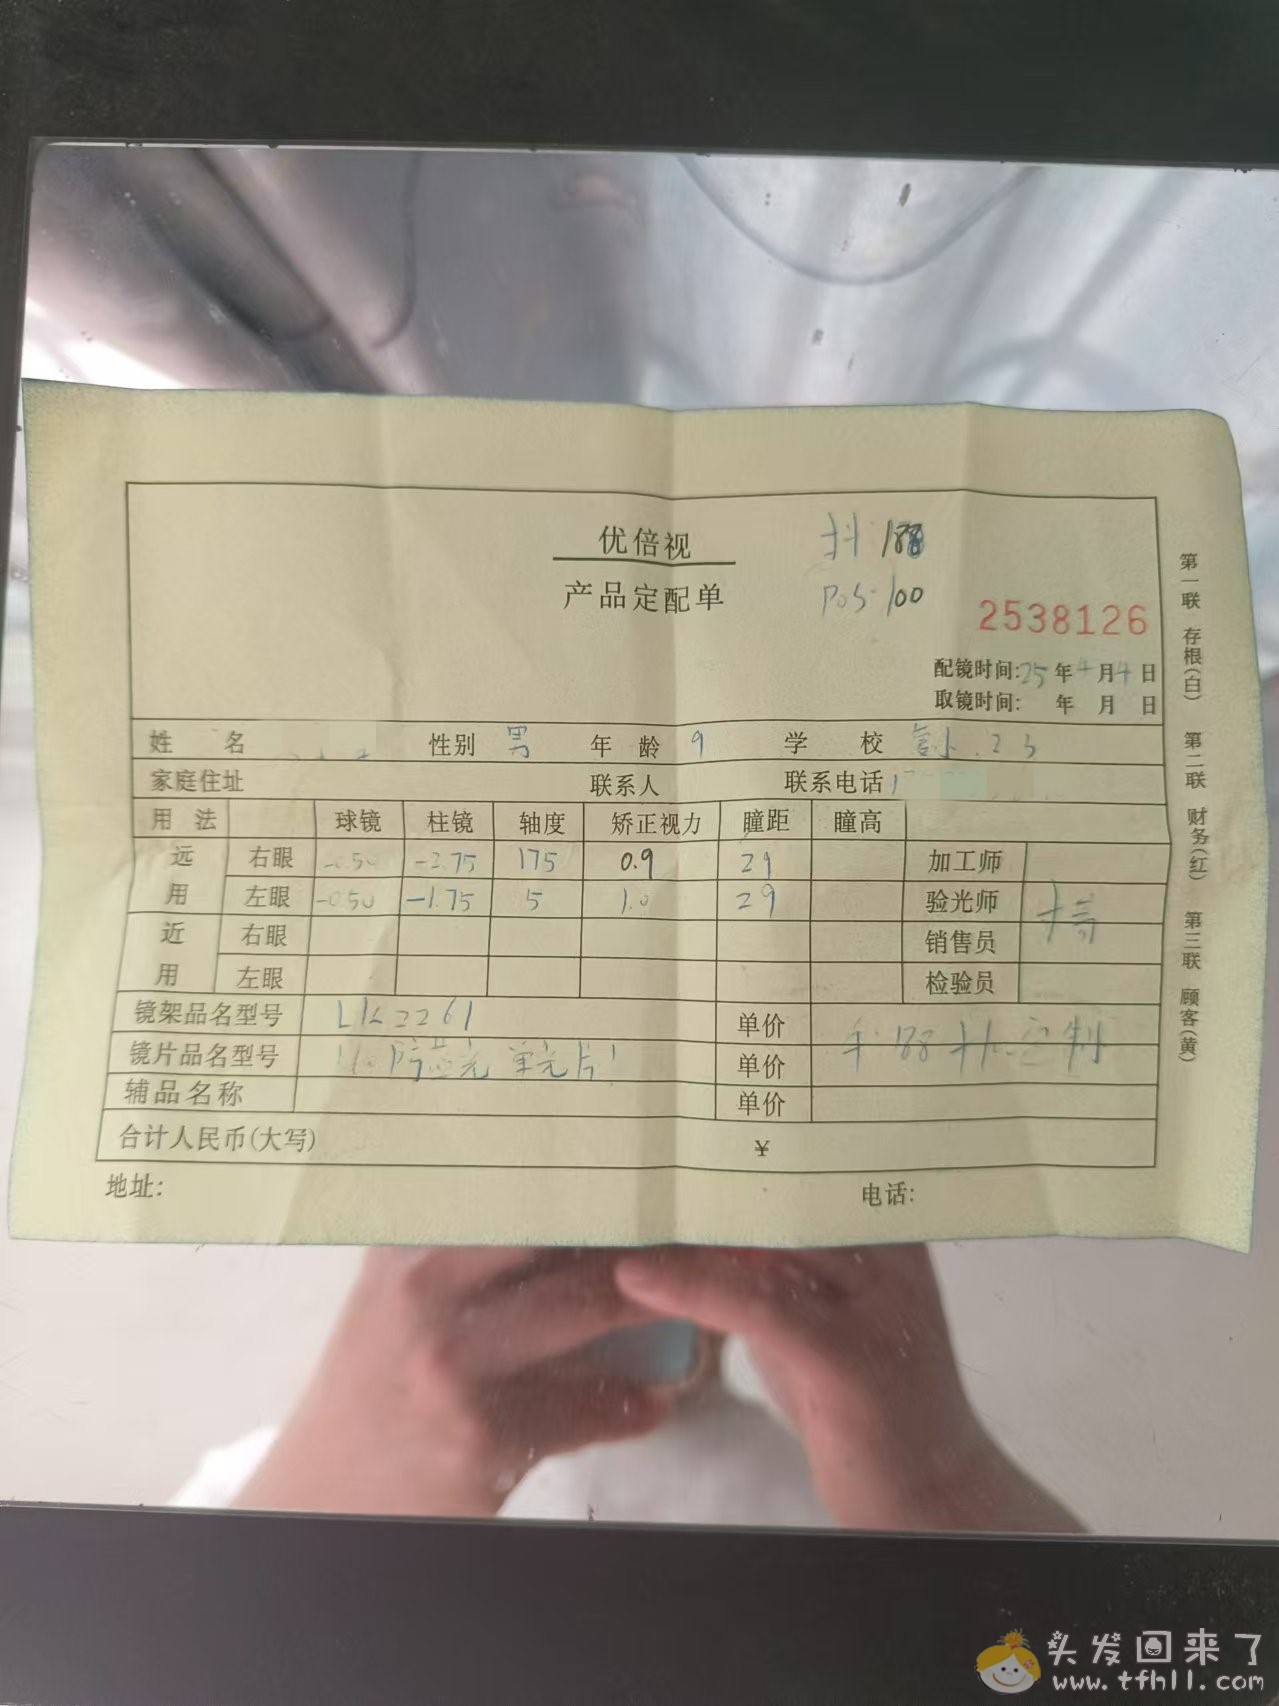 优倍视
抖 188
产品定配单
POS 100
2538126
配镜时间:25年4月4日
取镜时间: 年 月 日
姓 名 性别 男 年 龄 9 学 校
家庭住址 联系人 联系电话
用 法 球镜 柱镜 轴度 矫正视力 瞳距 瞳高
远用 右眼 -0.50 -2.75 175 0.9 29 加工师
左眼 -0.50 -1.75 5 1.0 29 验光师
近用 右眼 销售员
左眼 检验员
镜架品名型号 LK2261 单价
镜片品名型号 防蓝光 单光片 单价
辅品名称 单价
合计人民币(大写) ¥
地址: 电话:
第一联 存根(白) 第二联 财务(红) 第三联 顾客(黄)
头发回来了
www.tfhll.com